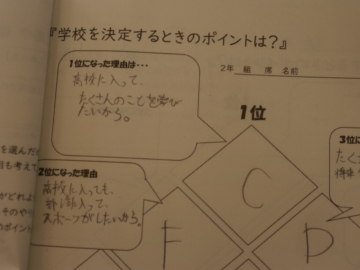 『学校を決定するときのポイントは?』
2年 組 席 名前
1位になった理由は・・・
高校に入って、
たくさんのことを学び
たいから。
1位
C
2位になった理由
高校に入っても、
部活に入って、
スポーツがしたいから。
F
D
3位に
たく